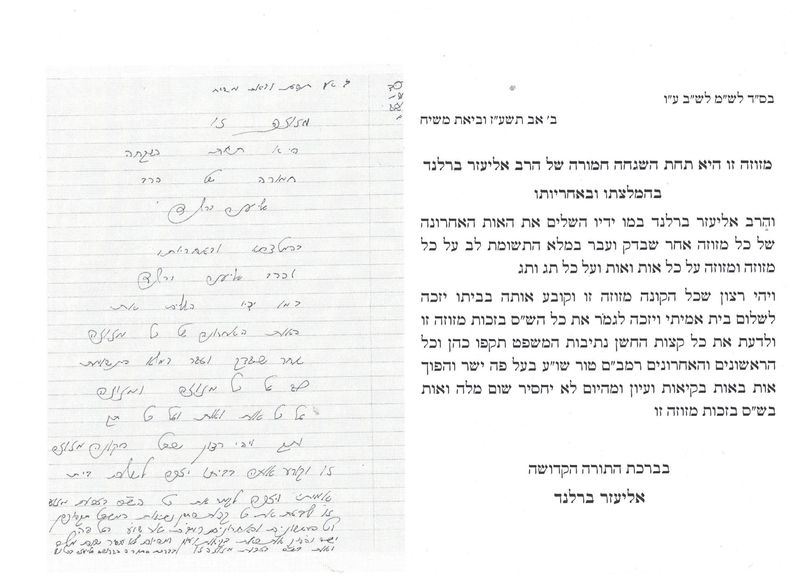 בס"ד לש"מ לש"ב ע"ו
ב' אב תשע"ז וביאת משיח
מזוזה זו היא תחת השגחה חמורה של הרב אליעזר ברלנד
בהמלצתו ובאחריותו
והַרב אליעזר ברלנד במו ידיו השלים את האות האחרונה
של כל מזוזה אחר שבדק ועבר במלא התשומת לב על כל
מזוזה ומזוזה על כל אות ואות ועל כל תג ותג
ויהי רצון שכל הקונה מזוזה זו וקובע אותה בביתו יזכה
לשלום בית אמיתי ויזכה לגמֹר את כל הש"ס בזכות מזוזה זו
ולדעת את כל קצות החשן נתיבות המשפט תקפו כהן וכל
הראשונים והאחרונים רמב"ם טור שו"ע בעל פה ישר והפוך
אות באות בקיאות ועיון ומהיום לא יחסיר שום מלה ואות
בש"ס בזכות מזוזה זו
בברכת התורה הקדושה
אליעזר ברלנד
ב' אב תשעז וביאת משיח
מזוזה זו
היא תחת השגחה
חמורה של הרב
אליעזר ברלנד
בהמלצתו ובאחריותו
והרב אליעזר ברלנד
במו ידיו השלים את
האות האחרונה של כל מזוזה
אחר שבדק ועבר במלא התשומת
לב על כל מזוזה ומזוזה
על כל אות ואות ועל כל תג
ותג ויהי רצון שכל הקונה מזוזה
זו וקובע אותה בביתו יזכה לשלום בית